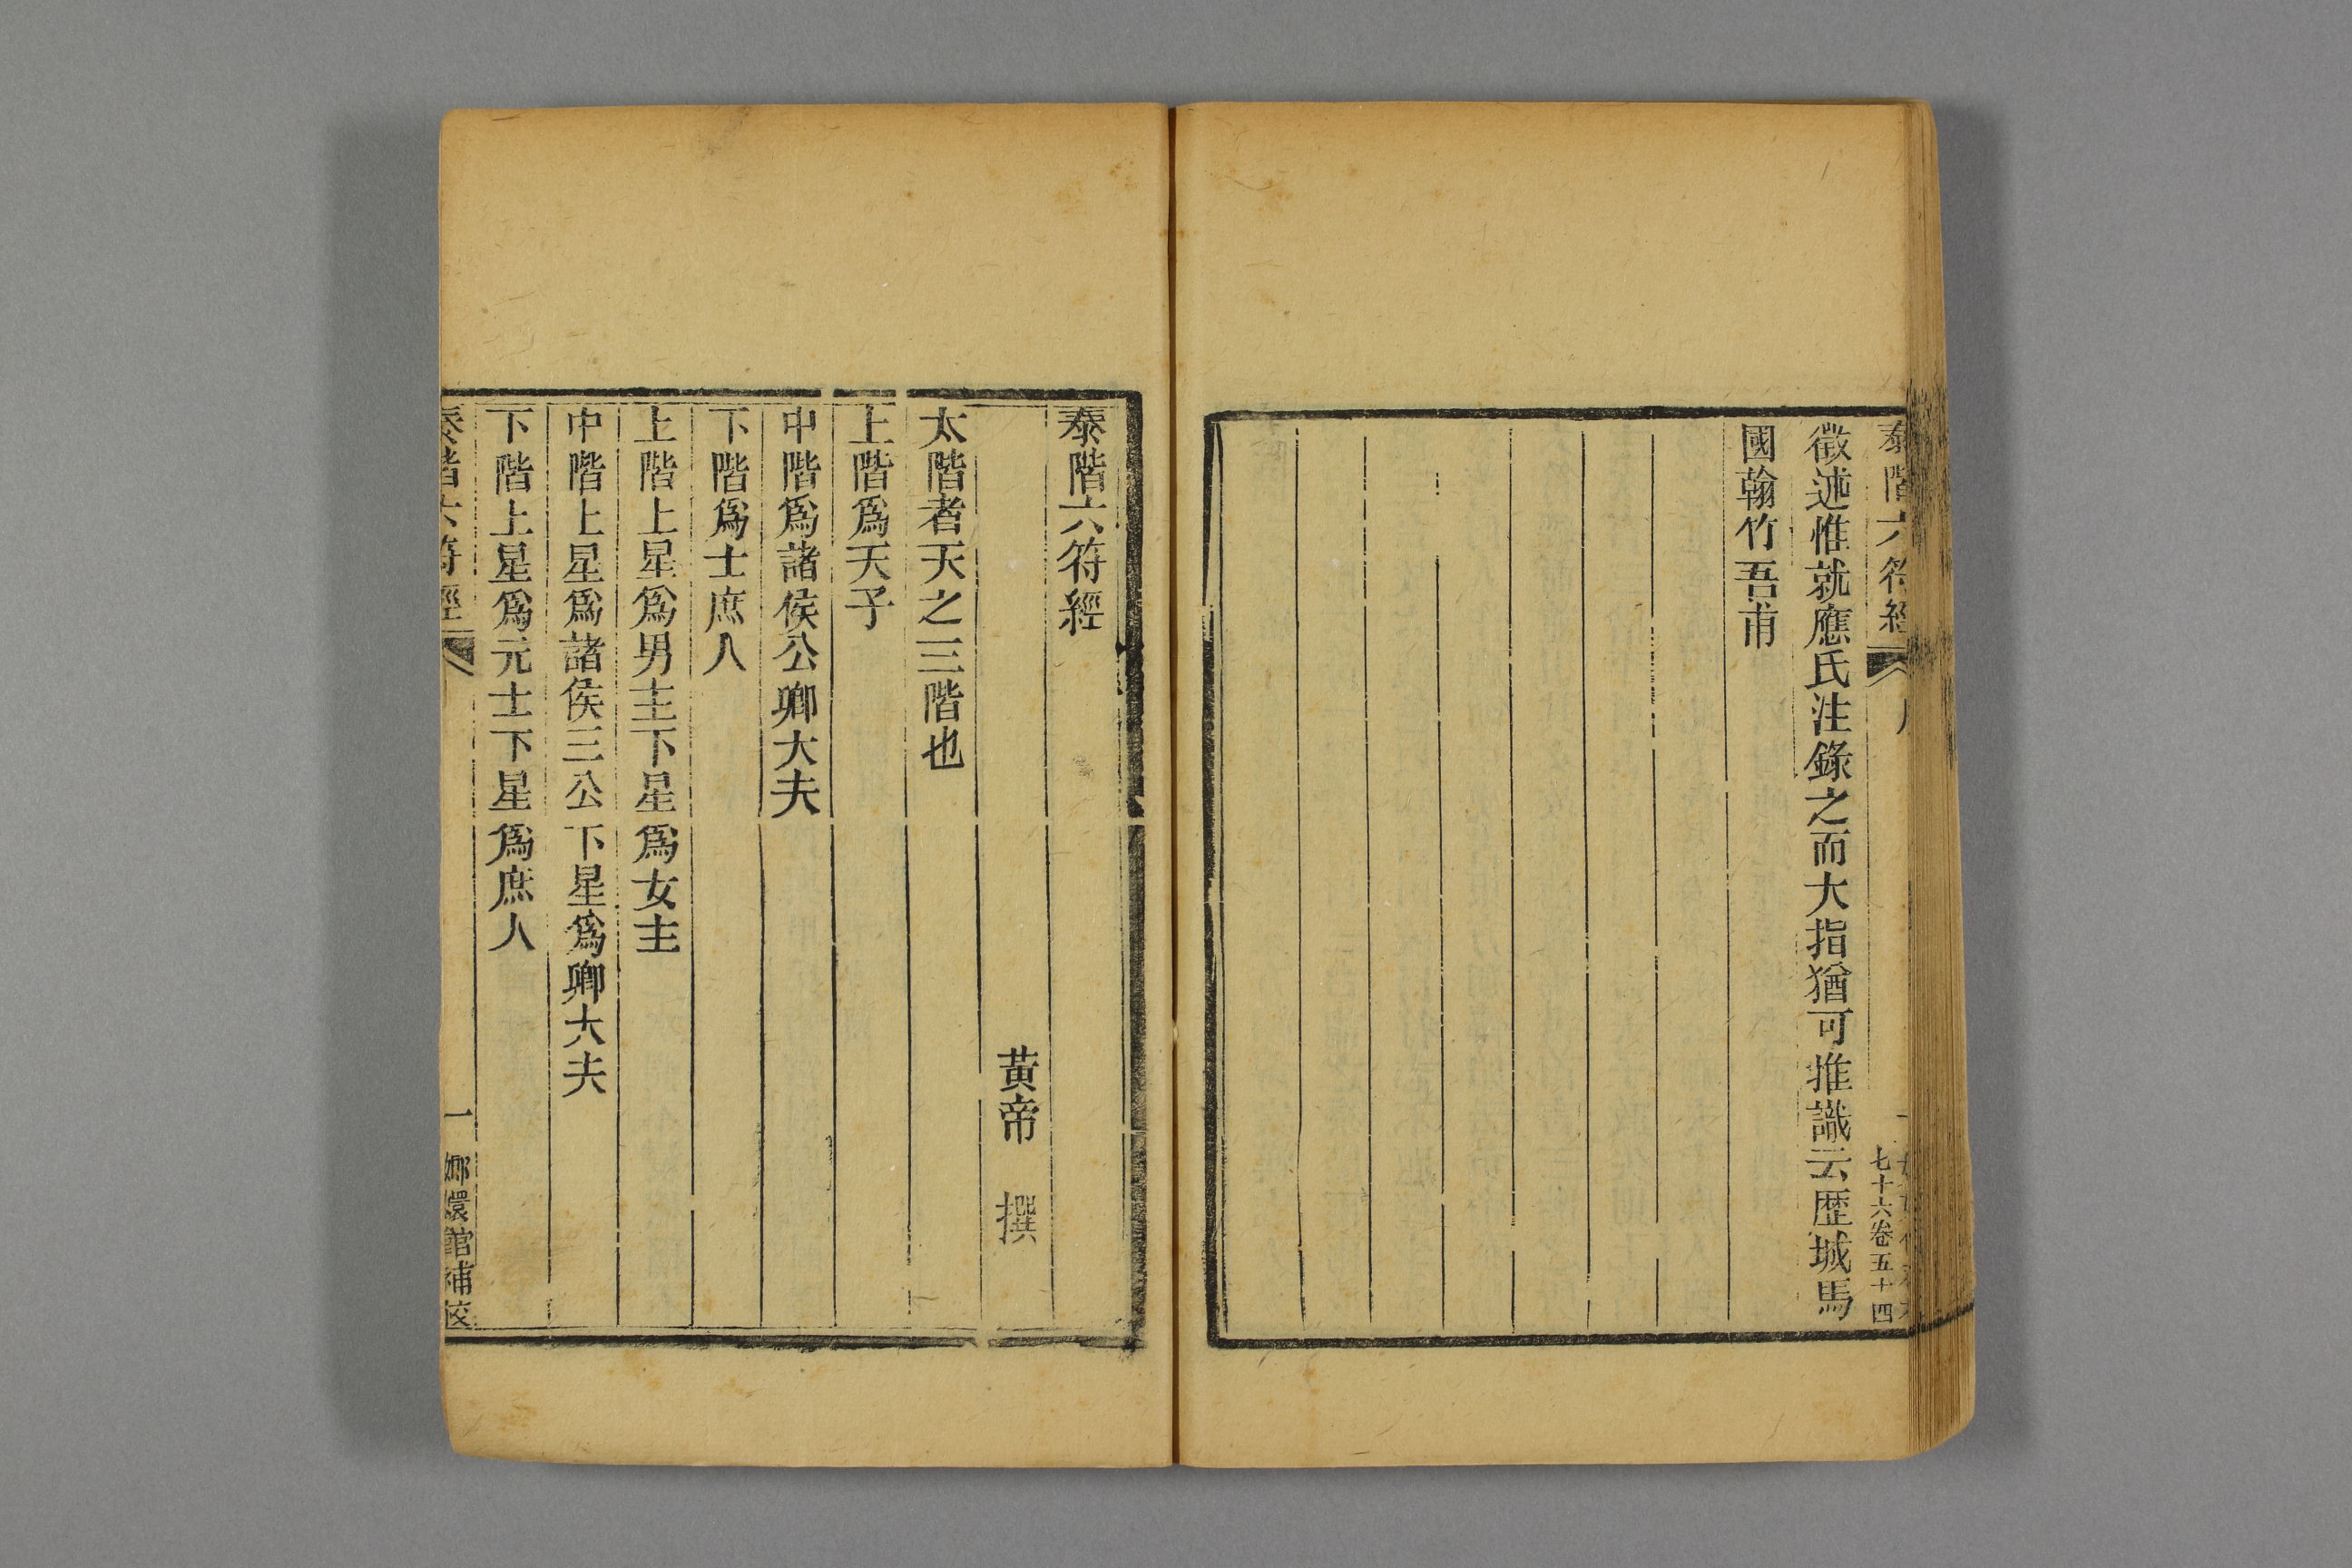 泰階六符經
七十六卷五十四
徵述惟就應氏注錄之而大指猶可推識云歷城馬
國翰竹吾甫
泰階六符經
黃帝 撰
太階者天之三階也
上階爲天子
中階爲諸侯公卿大夫
下階爲士庶人
上階上星爲男主下星爲女主
中階上星爲諸侯三公下星爲卿大夫
下階上星爲元士下星爲庶人
泰階六符經 一 嫏嬛館補校